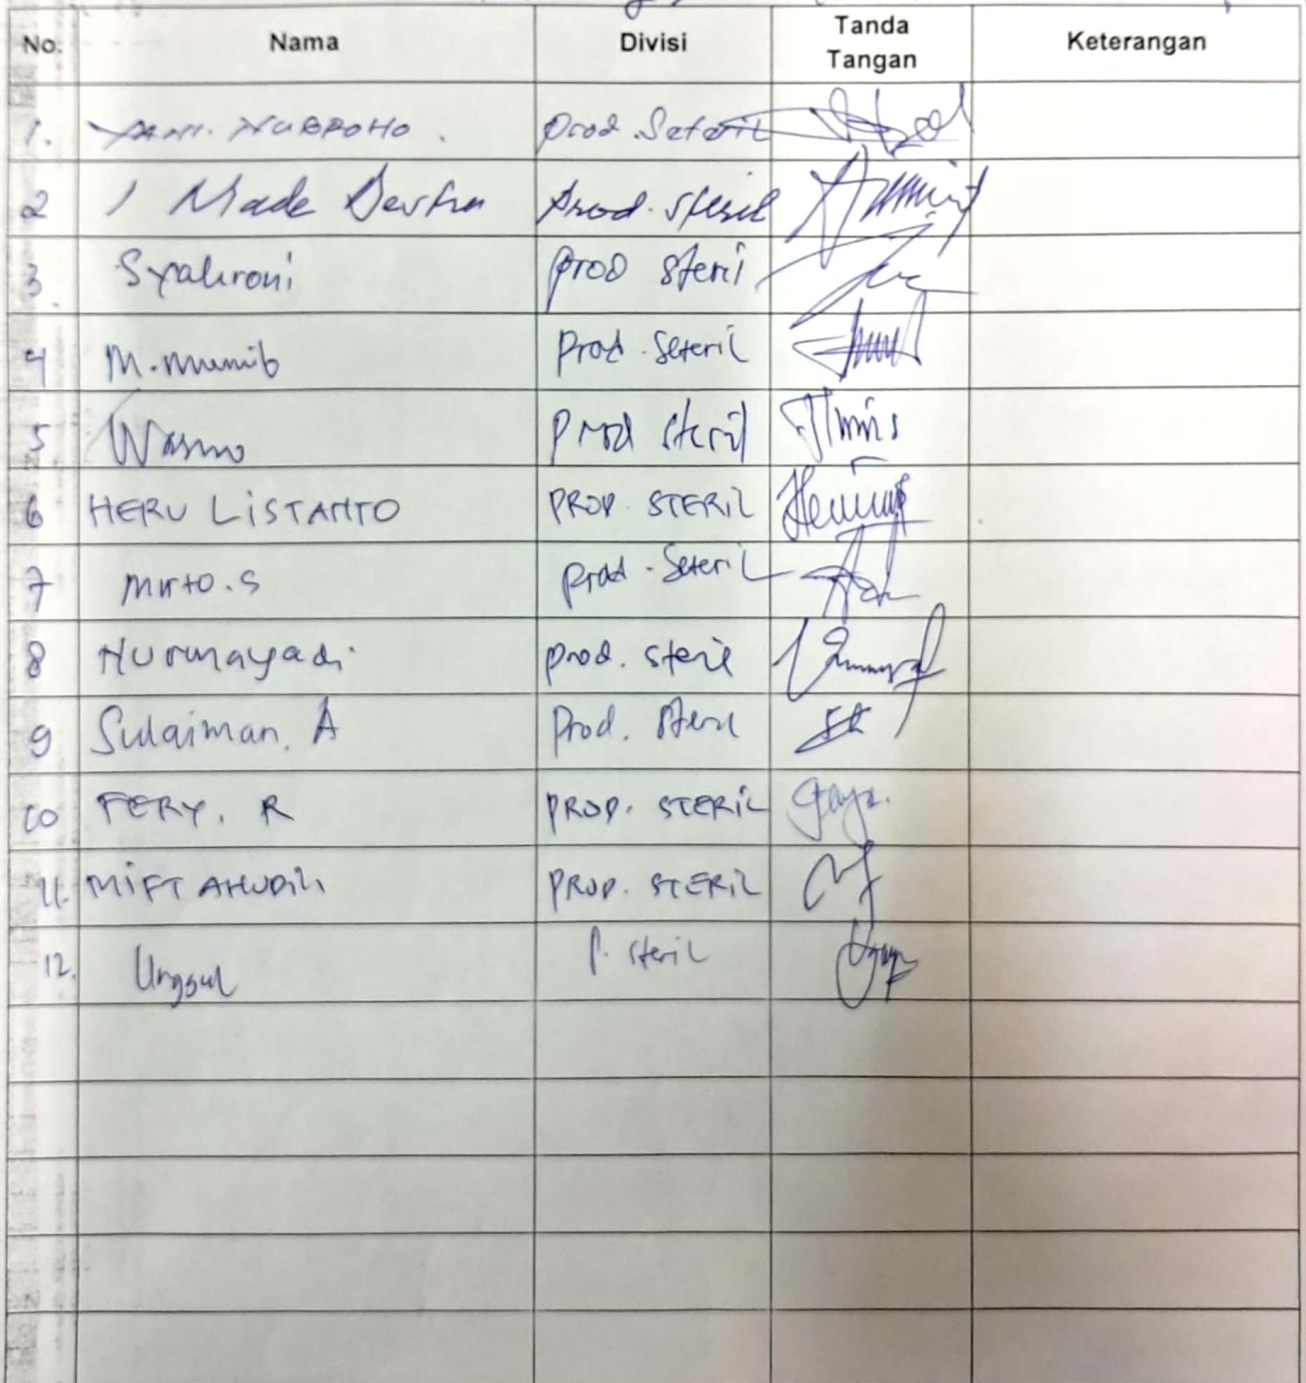 No. Nama Divisi Tanda Tangan Keterangan
1. YANI. NUGROHO. prod. Seteril
2 I Made Prod. steril
3. Syahroni prod steril
4 M. Munib Prod. Seteril
5 Warno Prod steril
6 HERU LiSTANTO PROD. STERiL
7 Mirto. S prod. Seteril
8 Nurmayadi prod. steril
9 Sulaiman. A Prod. steril
10 FERY. R PROD. STERiL
11. MiFTAHUDiN PROD. STERiL
12. Unggul P. steril